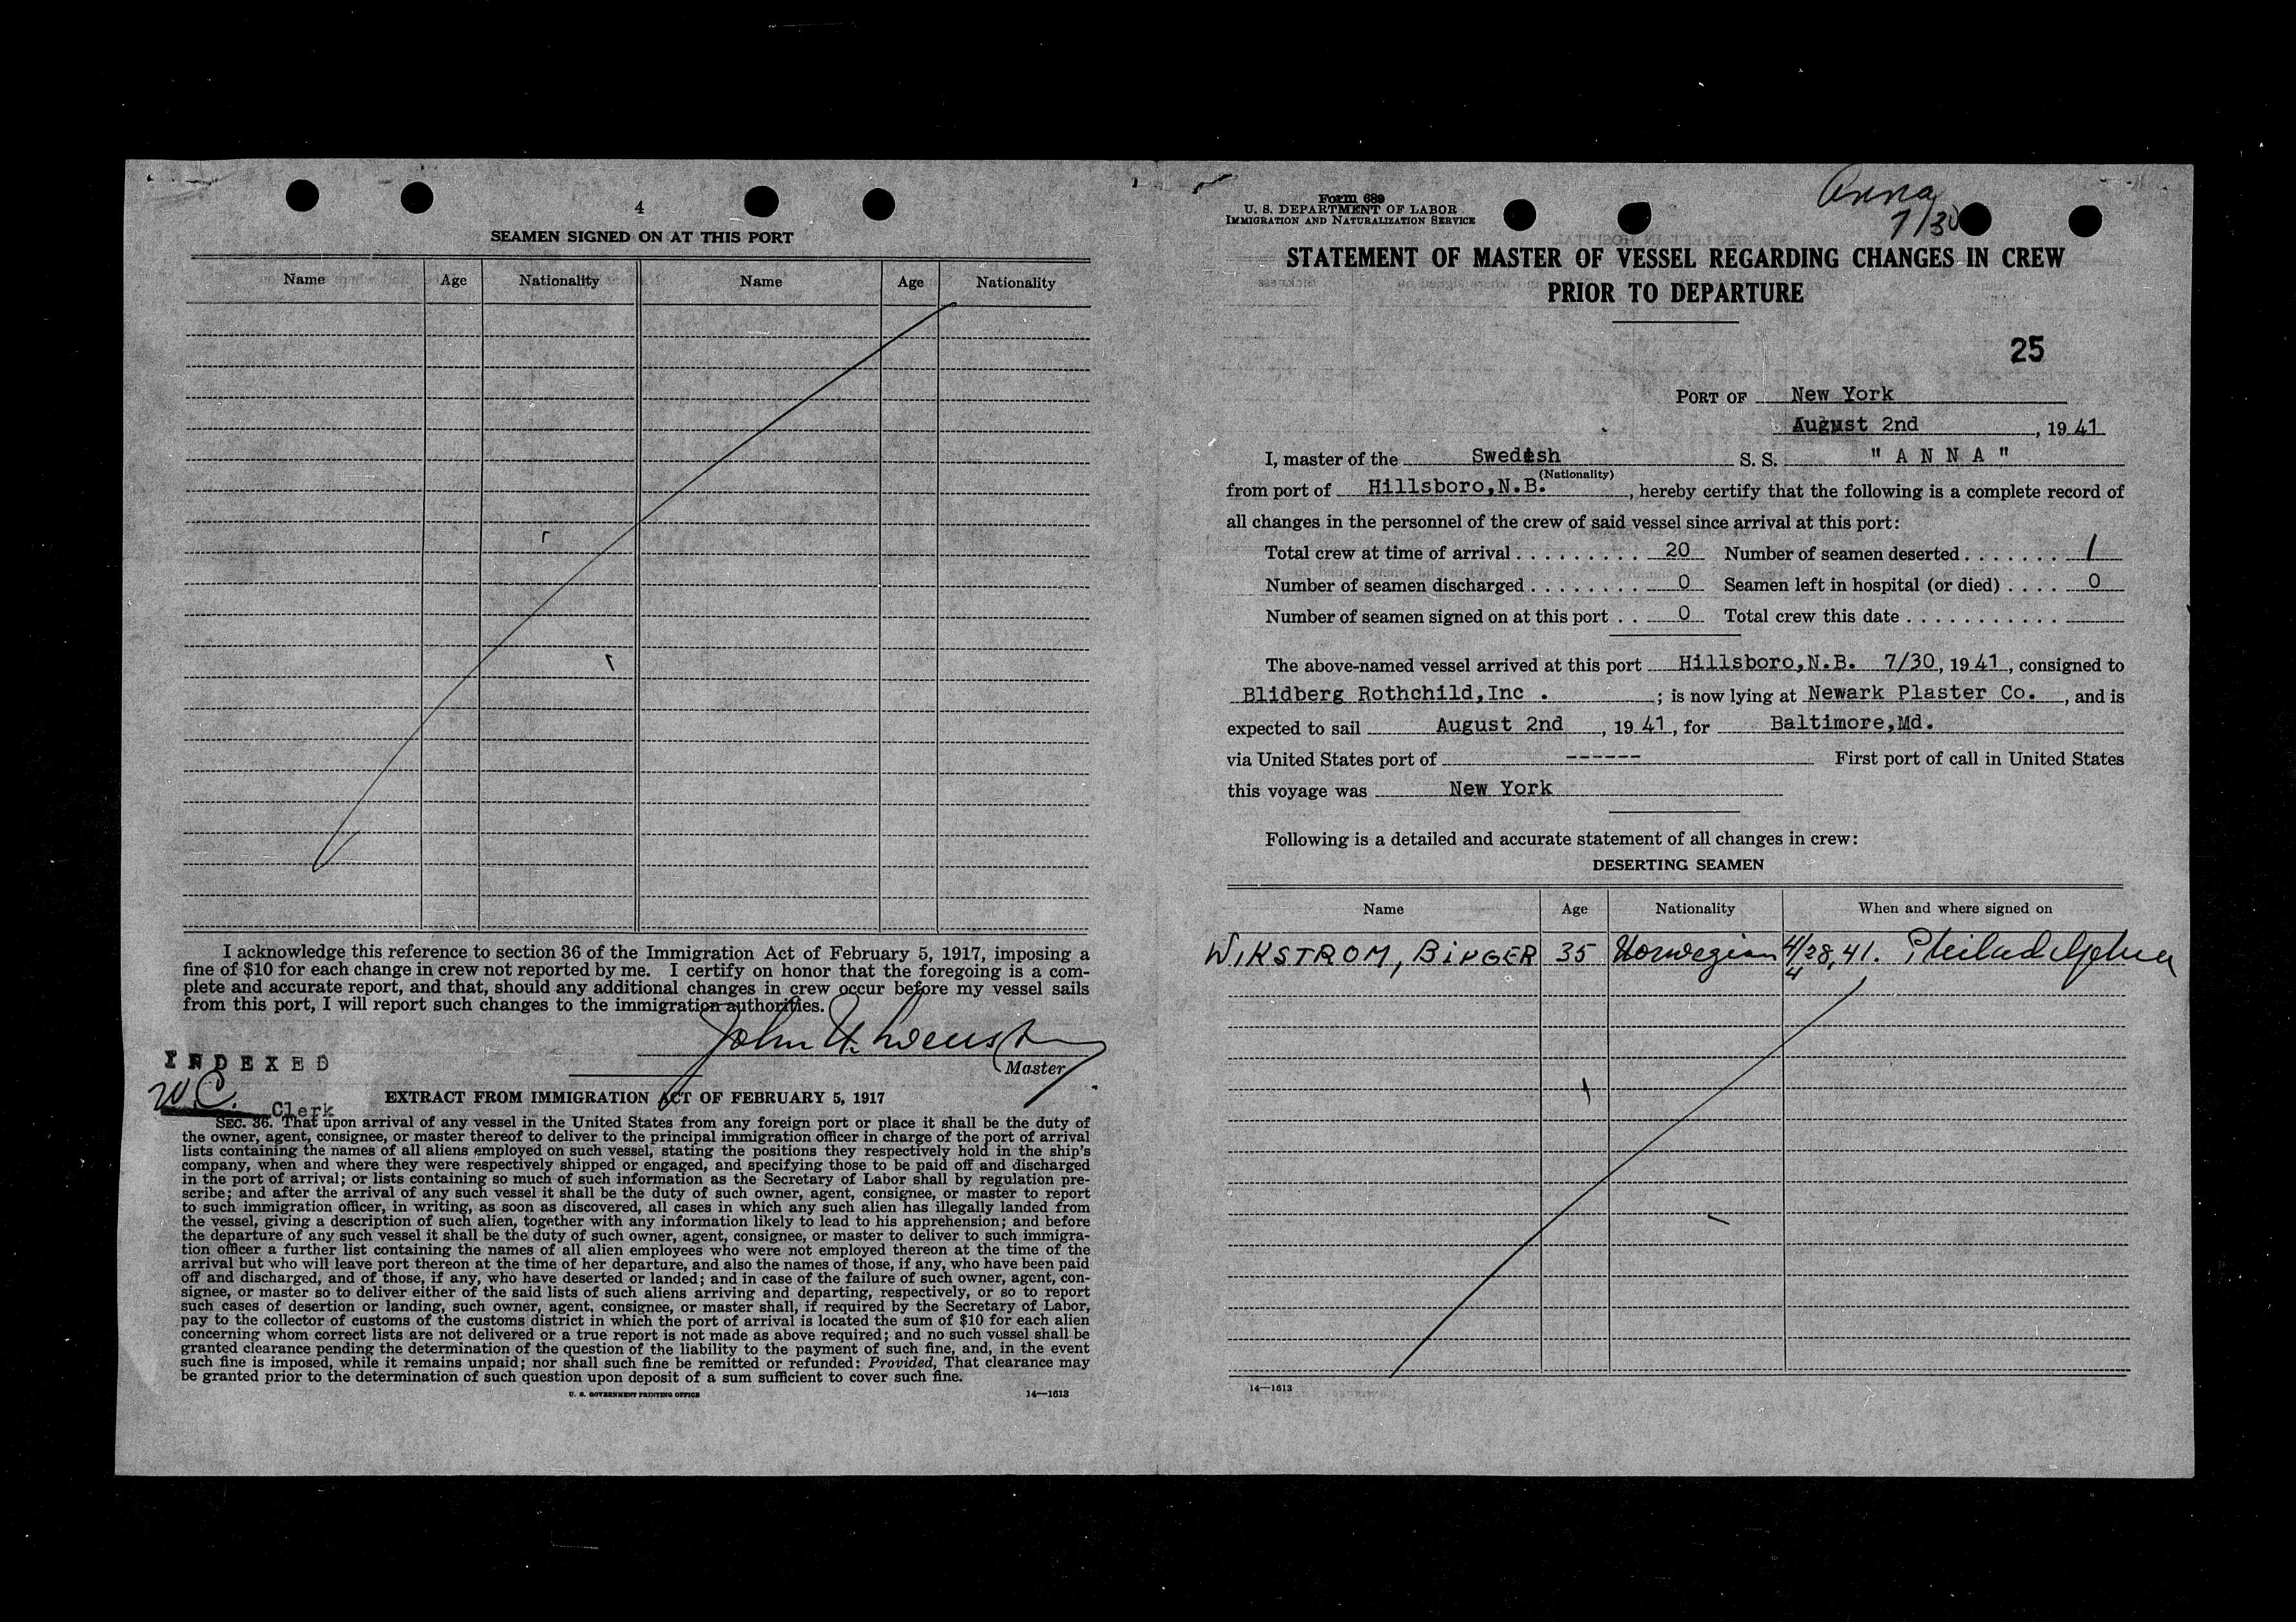 4
SEAMEN SIGNED ON AT THIS PORT
Name Age Nationality Name Age Nationality
I acknowledge this reference to section 36 of the Immigration Act of February 5, 1917, imposing a
fine of $10 for each change in crew not reported by me. I certify on honor that the foregoing is a com-
plete and accurate report, and that, should any additional changes in crew occur before my vessel sails
from this port, I will report such changes to the immigration authorities.
John
Master
INDEXED
W.C. Clerk
EXTRACT FROM IMMIGRATION ACT OF FEBRUARY 5, 1917
SEC. 36. That upon arrival of any vessel in the United States from any foreign port or place it shall be the duty of
the owner, agent, consignee, or master thereof to deliver to the principal immigration officer in charge of the port of arrival
lists containing the names of all aliens employed on such vessel, stating the positions they respectively hold in the ship's
company, when and where they were respectively shipped or engaged, and specifying those to be paid off and discharged
in the port of arrival; or lists containing so much of such information as the Secretary of Labor shall by regulation pre-
scribe; and after the arrival of any such vessel it shall be the duty of such owner, agent, consignee, or master to report
to such immigration officer, in writing, as soon as discovered, all cases in which any such alien has illegally landed from
the vessel, giving a description of such alien, together with any information likely to lead to his apprehension; and before
the departure of any such vessel it shall be the duty of such owner, agent, consignee, or master to deliver to such immigra-
tion officer a further list containing the names of all alien employees who were not employed thereon at the time of the
arrival but who will leave port thereon at the time of her departure, and also the names of those, if any, who have been paid
off and discharged, and of those, if any, who have deserted or landed; and in case of the failure of such owner, agent, con-
signee, or master so to deliver either of the said lists of such aliens arriving and departing, respectively, or so to report
such cases of desertion or landing, such owner, agent, consignee, or master shall, if required by the Secretary of Labor,
pay to the collector of customs of the customs district in which the port of arrival is located the sum of $10 for each alien
concerning whom correct lists are not delivered or a true report is not made as above required; and no such vessel shall be
granted clearance pending the determination of the question of the liability to the payment of such fine, and, in the event
such fine is imposed, while it remains unpaid; nor shall such fine be remitted or refunded: Provided, That clearance may
be granted prior to the determination of such question upon deposit of a sum sufficient to cover such fine.
U. S. GOVERNMENT PRINTING OFFICE 14—1613
Form 689
U. S. DEPARTMENT OF LABOR
IMMIGRATION AND NATURALIZATION SERVICE
Anna
7/30
STATEMENT OF MASTER OF VESSEL REGARDING CHANGES IN CREW
PRIOR TO DEPARTURE
25
PORT OF New York
August 2nd, 1941
I, master of the Swedish S. S. " A N N A "
(Nationality)
from port of Hillsboro,N.B., hereby certify that the following is a complete record of
all changes in the personnel of the crew of said vessel since arrival at this port:
Total crew at time of arrival . . . . . . . . . 20 Number of seamen deserted . . . . . . . 1
Number of seamen discharged . . . . . . . . 0 Seamen left in hospital (or died) . . . . 0
Number of seamen signed on at this port . . 0 Total crew this date . . . . . . . . . . . .
The above-named vessel arrived at this port Hillsboro,N.B. 7/30, 1941, consigned to
Blidberg Rothchild,Inc . ; is now lying at Newark Plaster Co. , and is
expected to sail August 2nd , 1941, for Baltimore,Md.
via United States port of ------ First port of call in United States
this voyage was New York
Following is a detailed and accurate statement of all changes in crew:
DESERTING SEAMEN
Name Age Nationality When and where signed on
WIKSTROM, 35 Norwegian 4/28,41. Philadelphia
4
14—1613